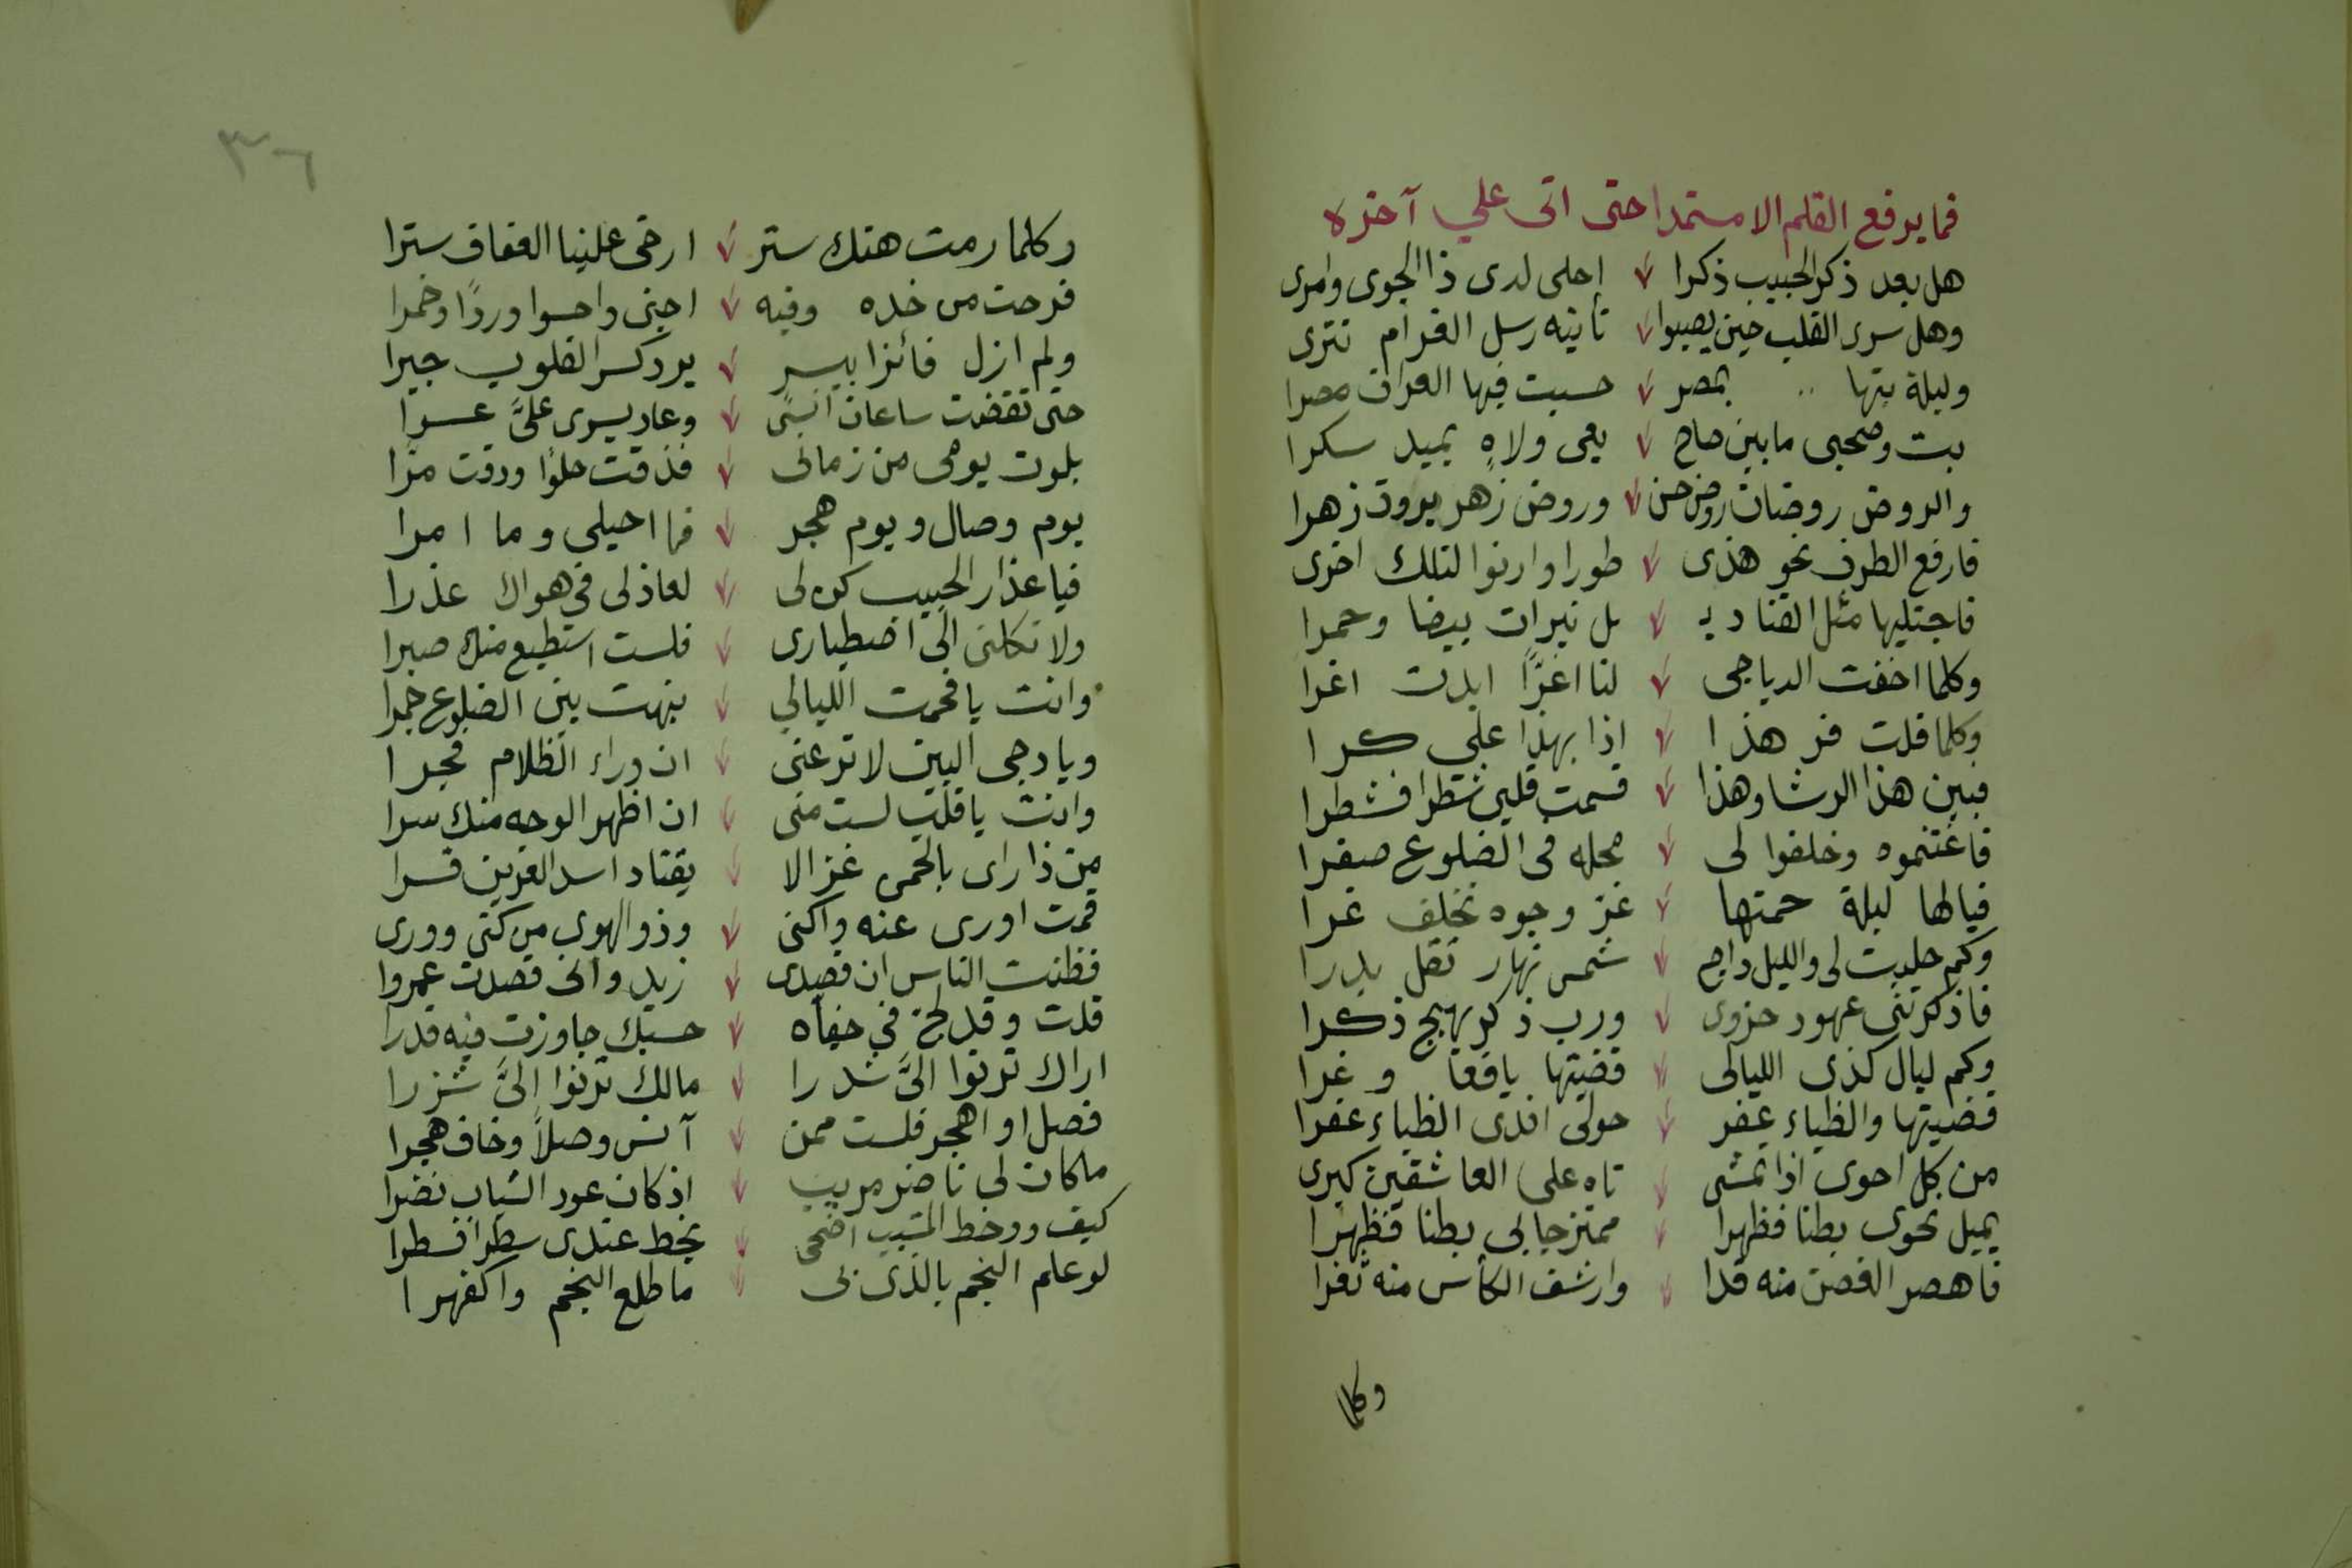 فما يرفع القلم الا مستمدا حتى اتى علي آخره
هل بعد ذكر الحبيب ذكرا احلى لدى ذا الجوى وامرى
وهل سرى القلب حين يصبوا تأتيه رسل الغرام تترى
وليلة بتها بمصر حسبت فيها العراق مصرا
بت وصحبى ما بين صاح يعى ولاهٍ يميد سكرا
والروض روضان روض حسن وروض زهر يروق زهرا
فارفع الطرف نحو هذى طورا وارنوا لتلك اخرى
فاجتليها مثل القناديـ ـل نيرات بيضا وحمرا
وكلما اخفت الدياجى لنا اغرًّا ابدت اغرا
وكلما قلت فر هذا اذا بهذا علي كرا
فبين هذا الرشا وهذا قسمت قلبى شطرا فشطرا
فاغتنموه وخلفوا لى محله فى الضلوع صفرا
فيالها ليلة حمتها غر وجوه تخلف غرا
وكم جليت لى والليل داج شمس نهار تقل بدرا
فاذكرتنى عهود حزوى ورب ذكر يهيج ذكرا
وكم ليال كذى الليالى قضيتها يافعا وغرا
قضيتها والظباء عفر حولى افدى الظباء عفرا
من كل احوى اذا تمشى تاه على العاشقين كبرى
يميل نحوى بطنا فظهرا ممتزجا بى بطنا فظهرا
فاهصر الغصن منه قدا وارشف الكأس منه ثغرا
وكلما
٣٦
وكلما رمت هتك ستر ارخى علينا العفاف سترا
فرحت من خده وفيه اجنى واحسوا وردًا وخمرا
ولم ازل فائزا بيسر يرد كسر القلوب جبرا
حتى تقضت ساعات انسى وعاد يسرى علىَّ عسرا
بلوت يومى من زمانى فذقت حلوًا وذقت مرًّا
يوم وصال ويوم هجر فما احيلى وما امرا
فيا عذار الحبيب كن لى لعاذلى فى هواك عذرا
ولا تكلنى الى اصطبارى فلست استطيع منك صبرا
وانت يا فحمت الليالي بنهت بين الضلوع جمرا
ويا دجى البين لا ترعنى ان وراء الظلام فجرا
وانت يا قلب لست منى ان اظهر الوجه منك سرا
من ذا راى بالحمى غزالا يقتاد اسد العرين قسرا
قمت اورى عنه واكنى وذو الهوى من كنى وورى
فظنت الناس ان قصدى زيد وانى قصدت عمروا
قلت وقد لح في جفاه حسبك جاوزت فيه قدرا
اراك ترنوا الىَّ شذرا مالك ترنوا الىَّ شزرا
فصل او اهجر فلست ممن آنس وصلاً وخاف هجرا
ما كان لى ناضر مريب اذ كان عود الشباب نضرا
كيف ووخط المشيب اضحى يخط عندى سطرا فسطرا
لو علم النجم بالذى بى ما طلع النجم واكفهرا